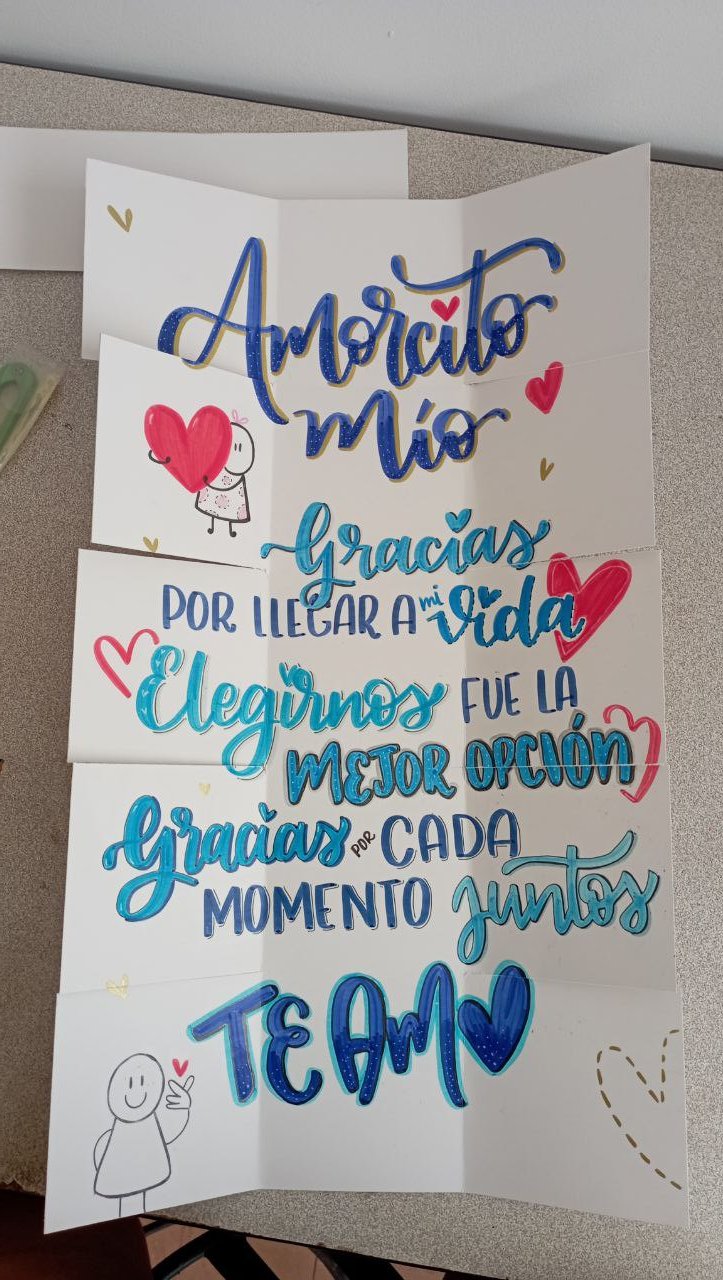 Amorcito
Mío
Gracias
POR LLEGAR A mi vida
Elegirnos FUE LA
MEJOR OPCIÓN
Gracias POR CADA
MOMENTO juntos
TE AM